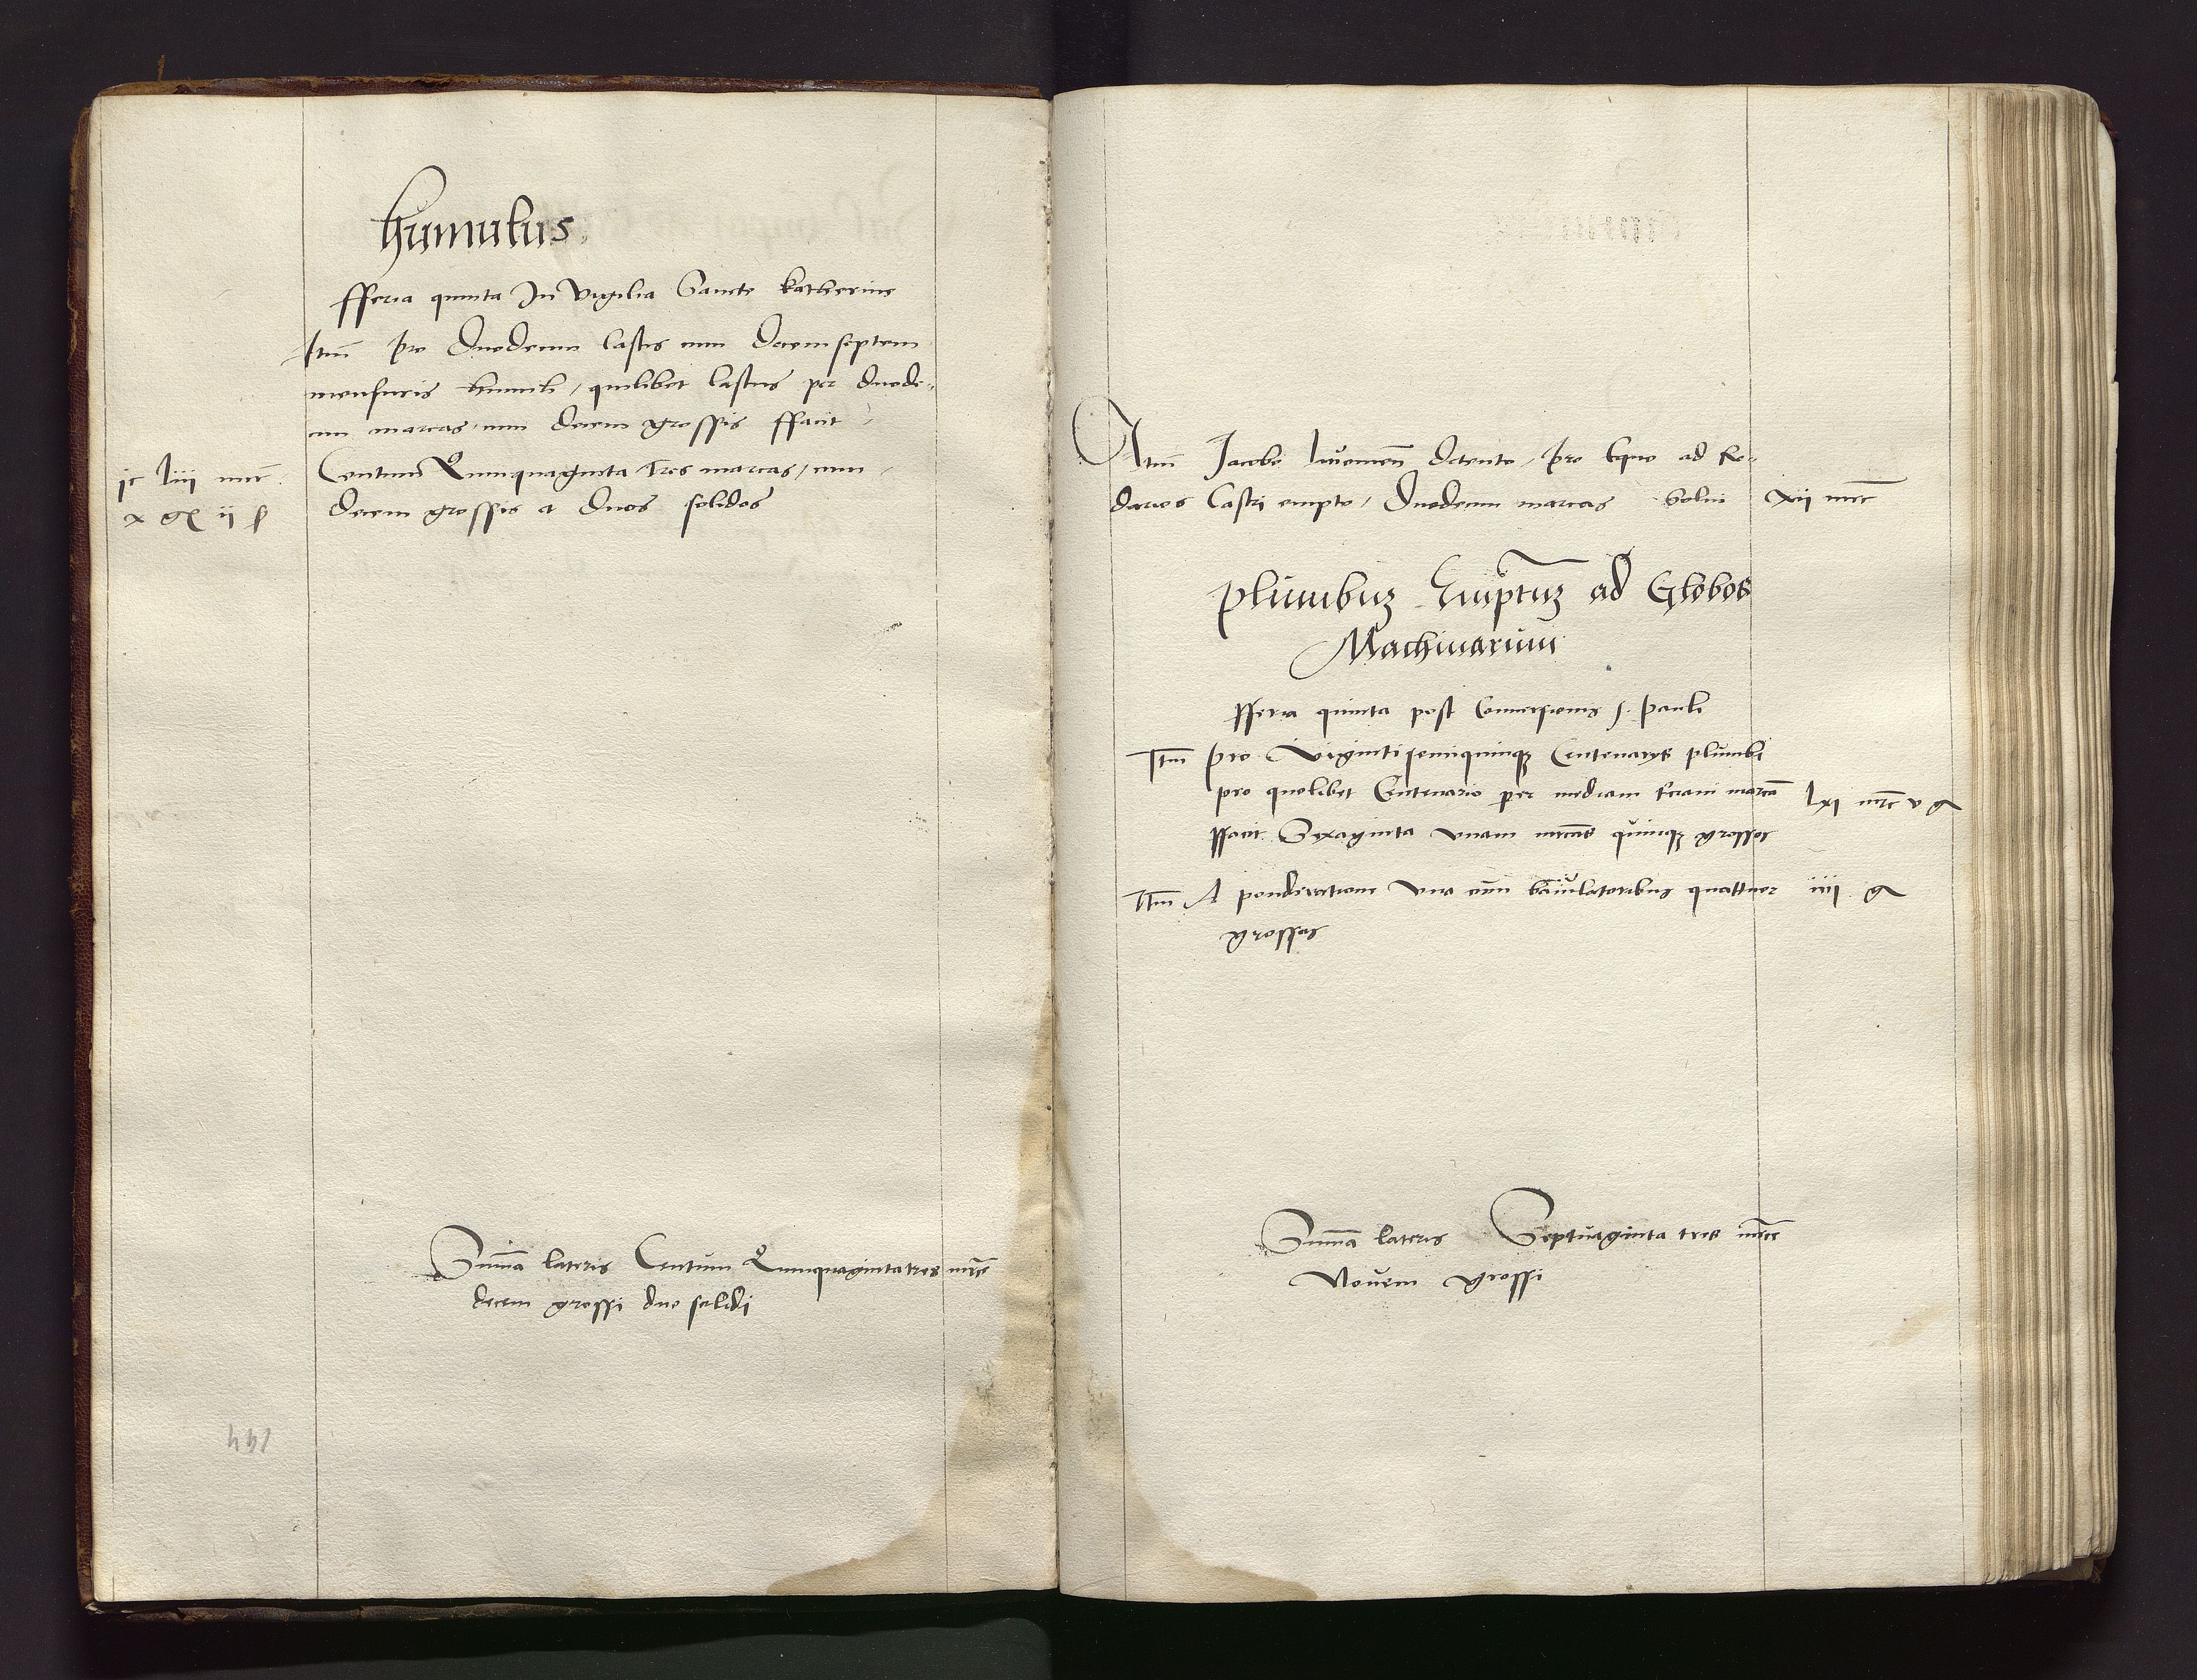 humulus
fferia quinta In vigilia Sancte Katherine
Itm pro Duodecim lastis cum Decemseptem
mensuris humuli, quilibet lastus per duode-
cim marcas cum decem grossis ffacit
jc liii mrc Centum Quinquaginta Tres marcas, cum
x gr ii s decem grossis et duos solidos
Suma lateris Centum Quinquagintatres mrc
decem grossi duo solidi
144
Itm Jacobo detento, pro Equo ad Re-
darios Castri empto, Duodecim marcas Solui xii mrc
Plumbum Emptum ad Globos
Machinarum
fferia quinta post Conuersionis s. Pauli
Itm pro Viginti semiquinque Centenarys plumbi
pro quolibet Centenario per mediam terciam marca lxi mrc v g
ffacit Sexaginta vnam mrcas quinque grossos
Itm A ponderatione vna cum baiulatoribus quattuor iiii g
grossos
Suma lateris Septuaginta tres mrce
Nouem grossi